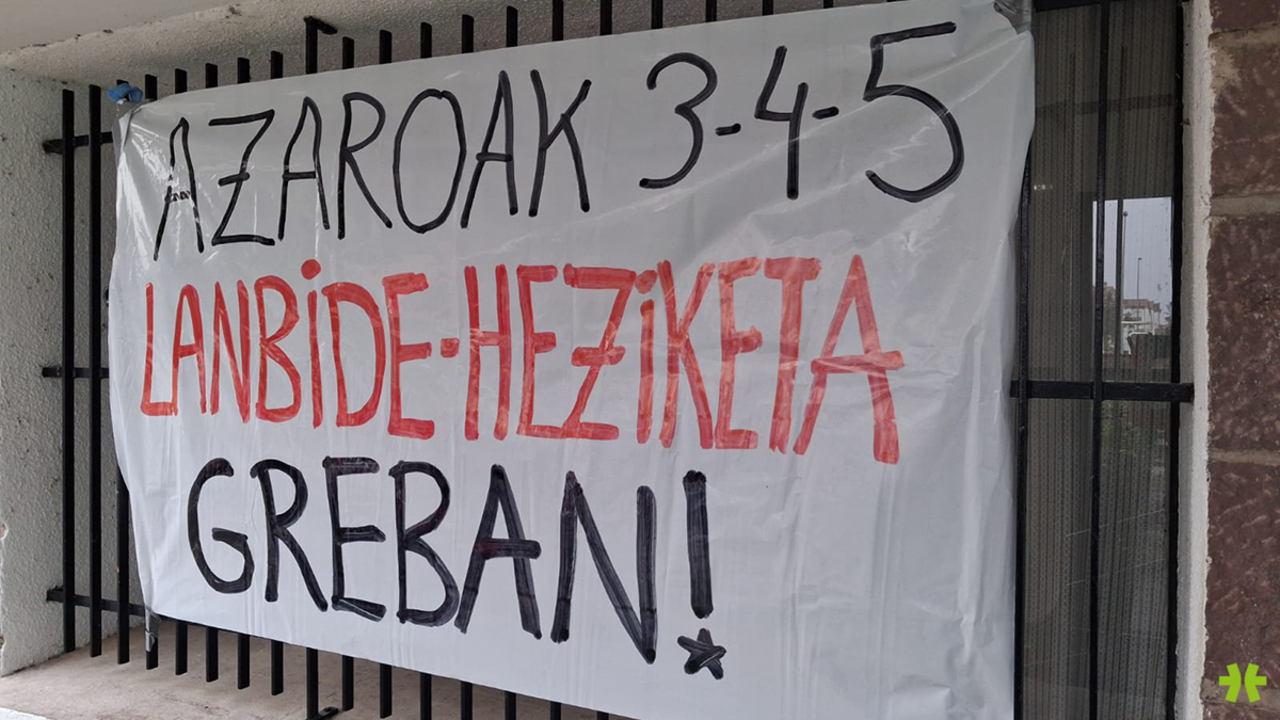 AZAROAK 3-4-5
LANBIDE-HEZIKETA
GREBAN!